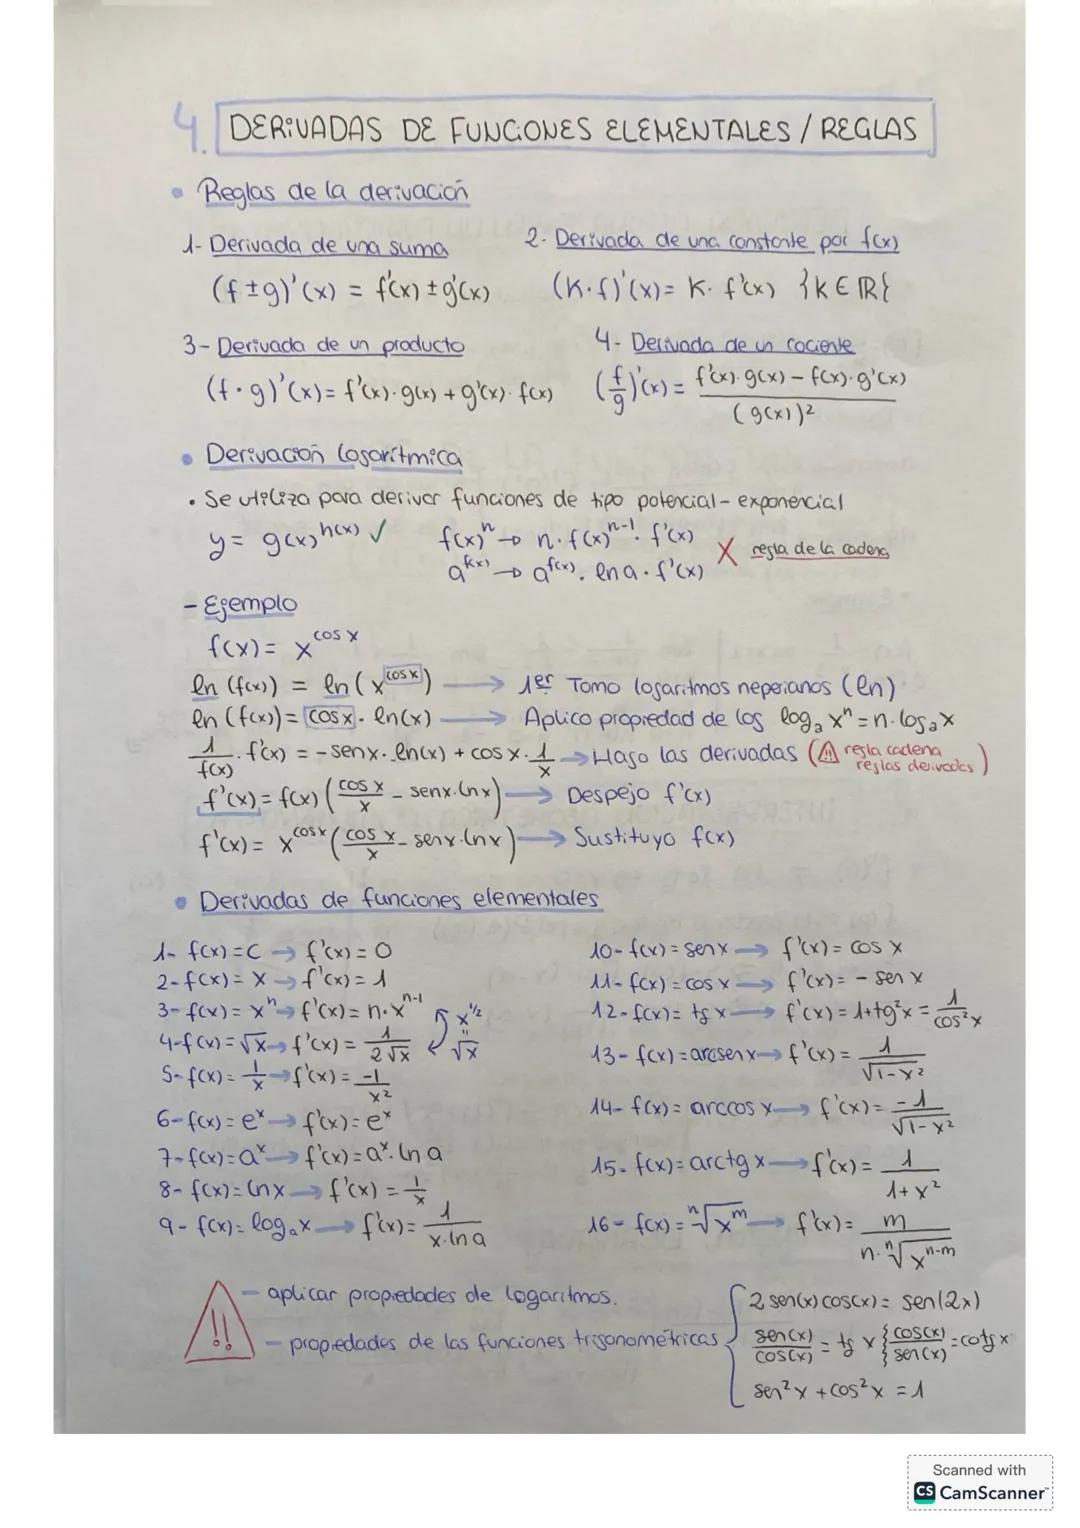 4. DERIVADAS DE FUNCIONES ELEMENTALES / REGLAS
• Reglas de la derivación
1- Derivada de una suma
(f ± g)'(x) = f'(x) ± g'(x)
2- Derivada de una constante por f(x)
(K·f)'(x) = K· f'(x) {K ∈ ℝ{
3- Derivada de un producto
(f · g)'(x) = f'(x)·g(x) + g'(x)·f(x)
4- Derivada de un cociente
(f/g)'(x) = f'(x)·g(x) – f(x)·g'(x) / (g(x))²
• Derivación logarítmica
· Se utiliza para derivar funciones de tipo potencial - exponencial
y = g(x)^h(x) ✓ f(x)^n → n·f(x)^n-1· f'(x)
a^f(x) → a^f(x)· ln a · f'(x) X regla de la cadena
- Ejemplo
f(x) = x^cos x
ln (f(x)) = ln (x^cos x) → 1er Tomo logaritmos neperianos (ln)
ln (f(x)) = cos x · ln(x) → Aplico propiedad de los log_a x^n = n·log_a x
1/f(x) · f'(x) = -sen x · ln(x) + cos x · 1/x → Hago las derivadas (⚠ regla cadena reglas derivadas)
f'(x) = f(x) (cos x/x - sen x·ln x) → Despejo f'(x)
f'(x) = x^cos x (cos x/x - sen x·ln x) → Sustituyo f(x)
• Derivadas de funciones elementales
1- f(x) = C → f'(x) = 0
2- f(x) = x → f'(x) = 1
3- f(x) = x^n → f'(x) = n·x^n-1
4- f(x) = √x → f'(x) = 1/2√x x^1/2 = √x
5- f(x) = 1/x → f'(x) = -1/x²
6- f(x) = e^x → f'(x) = e^x
7- f(x) = a^x → f'(x) = a^x · ln a
8- f(x) = ln x → f'(x) = 1/x
9- f(x) = log_a x → f'(x) = 1/x·ln a
10- f(x) = sen x → f'(x) = cos x
11- f(x) = cos x → f'(x) = - sen x
12- f(x) = tg x → f'(x) = 1 + tg²x = 1/cos²x
13- f(x) = arcsen x → f'(x) = 1/√1-x²
14- f(x) = arccos x → f'(x) = -1/√1-x²
15- f(x) = arctg x → f'(x) = 1/1+x²
16- f(x) = ⁿ√x^m → f'(x) = m/n·ⁿ√x^n-m
!! - aplicar propiedades de logaritmos.
- propiedades de las funciones trigonométricas
2 sen(x) cos(x) = sen(2x)
sen(x)/cos(x) = tg x } cos(x)/sen(x) = cotg x
sen²x + cos²x = 1
Scanned with
CS CamScanner™